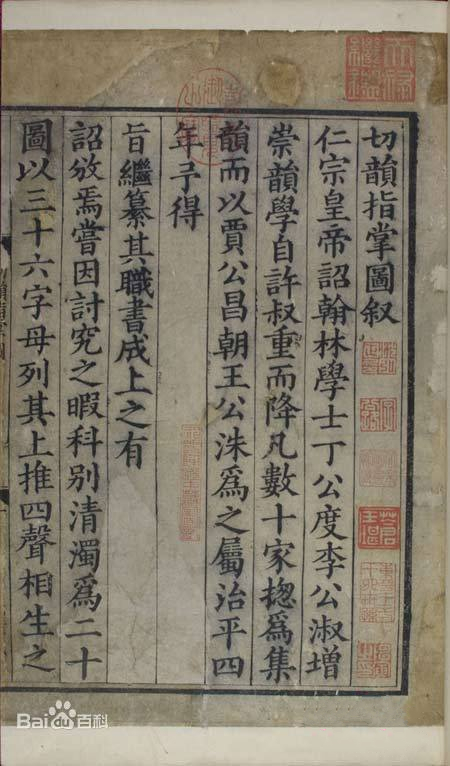 切韻指掌圖叙
仁宗皇帝詔翰林學士丁公度李公淑增
崇韻學自許叔重而降凡數十家揔爲集
韻而以賈公昌朝王公洙爲之屬治平四
年予得
旨繼纂其職書成上之有
詔攽焉嘗因討究之暇科别清濁爲二十
圖以三十六字母列其上推四聲相生之
Bai百科